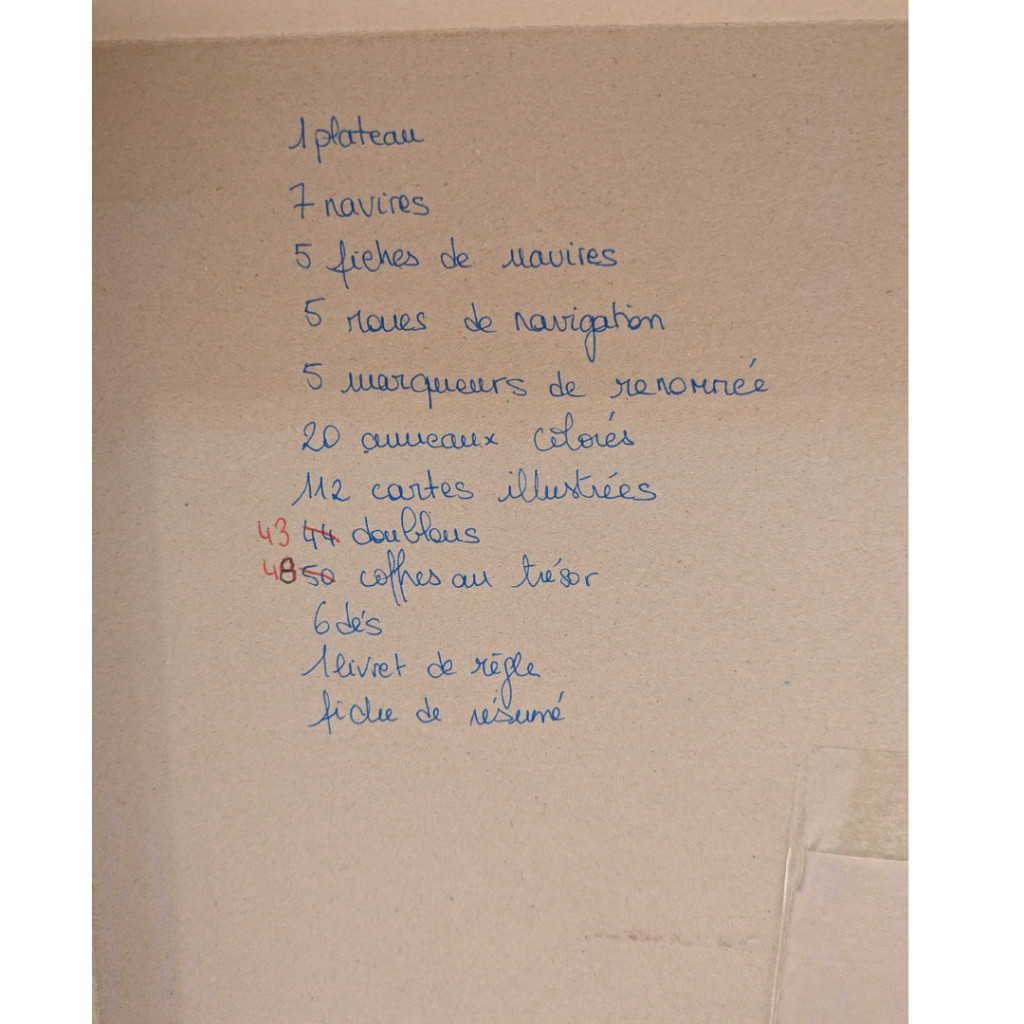 1 plateau
7 navires
5 fiches de navires
5 roues de navigation
5 marqueurs de renommée
20 anneaux colorés
112 cartes illustrées
43 44 doublons
48 50 coffres au trésor
6 dés
1 livret de règle
fiche de résumé